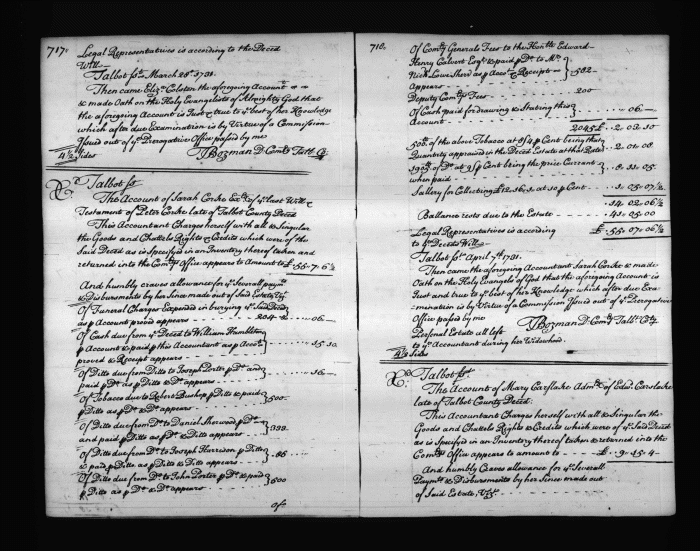 717.
Legal Representatives is according to the Deced
Will
Talbot sc. March 28th 1731.
Then came Eliza Colston the aforegoing Accountt
& made Oath on the Holy Evangelists of Almighty God that
the aforegoing Account is Just & true to ye best of her Knowledge
which after due Examination is by Virtue of a Commission
Issued out of ye Prerogative Office passed by me
4 1/2 Sides TBozman D Comry Talb Co
Talbot sc
The Account of Sarah Corke Exx of ye last Will &
Testament of Peter Corke late of Talbot County Deced
This Accountant Charges herself with all & Singular
the Goods and Chattels Rights & Credits which were of the
Said Deced as is Specified in an Inventory thereof taken and
returned into the Comrys Office appears to Amount to £ 55..7..6 1/2
And humbly craves allowance for ye Severall paymts
& Disbursements by her Since made out of Said Estate Vizt
Of Funerall Charges Expended in burying ye Said Deced
as p Account proved appears 204 .. 06 —
Of Cash due from ye Deced to William Hambleton
p Account & paid p this Accountant as p Accot
proved & Receipt appears 15..10
Of Ditto due from Do to Joseph Porter p Do and
paid p Do as p Ditto & Ditto appears 16 —
Of Tobacco due to Robert Bushop p Ditto & paid
p Ditto as p Do & Do appears 500.
Of Ditto due from Do to Daniel Sherwood p Do
and paid p Ditto as p Do & Ditto appears 393.
Of Ditto due from Do to Joseph Harrison p Ditto
& paid p Ditto as p Ditto & Ditto appears 86
Of Ditto due from Do to John Porter p Do & paid
p Ditto as p Do & Do appears 600
Of
718.
Of Comry Generals Fees to the Honble Edward
Henry Calvert Esqr & paid p Do to Mr
Nich Lowe Sherd as p Accot & Receipt
appears 582
Deputy Comrys Fees 200
Of Cash paid for drawing & Stating this
Account .. 06 —
2045 £ .. 2..02..10
50 of the above Tobacco at 8/4 p Cent being that
Quantity appraised in the Deced Estate at that Rate 2..01..08.
1905 of Do at 9/ p Cent being the price Currant
when paid 8..11..05
Sallery for Collecting £12..16..1. at 10 p Cent 1..05..07 1/2
14..02..06 1/2
Ballance rests due to the Estate 41..05..00
Legal Representatives is according £ 55..07..06 1/2
to ye Deceds Will
Talbot sc. April 7th 1731.
Then came the aforegoing Accountant Sarah Corke & made
Oath on the Holy Evangels of God that the aforegoing Account is
Just and true to ye best of her Knowledge which after due Exa=
mination is by Virtue of a Commission Issued out of ye Prerogative
Office passed by me
TBozman D Comry Talb Co
Personal Estate all left
to ye Accountant during her Widowhood.
4 1/2 Sides
Talbot sc
The Account of Mary Carslake Admx of Edwd Carslake
late of Talbot County Deced.
This Accountant Charges herself with all & Singular the
Goods and Chattels Rights & Credits which were of ye Said Deced
as is Specified in an Inventory thereof taken & returned into the
Comrys Office appears to amount to £ .. 9..15..4 —
And humbly Craves allowance for ye Severall
Paymts & Disbursements by her Since made out
of Said Estate, Vizt.